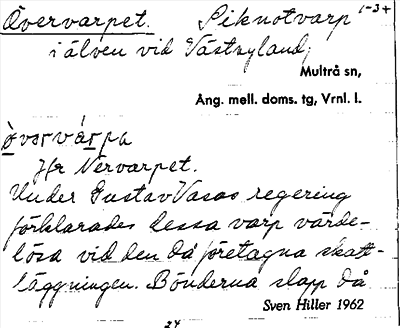 Övervarpet. Siknotvarp 1-3+
i älven vid Västnyland,
Multrå sn,
Ång. mell. doms. tg, Vrnl. l.
òvərvárpa
Jfr Nervarpet.
Under Gustav Vasas regering
förklarades dessa varp värde-
lösa vid den då företagna skatt-
läggningen. Bönderna slapp då
Sven Hiller 1962
24